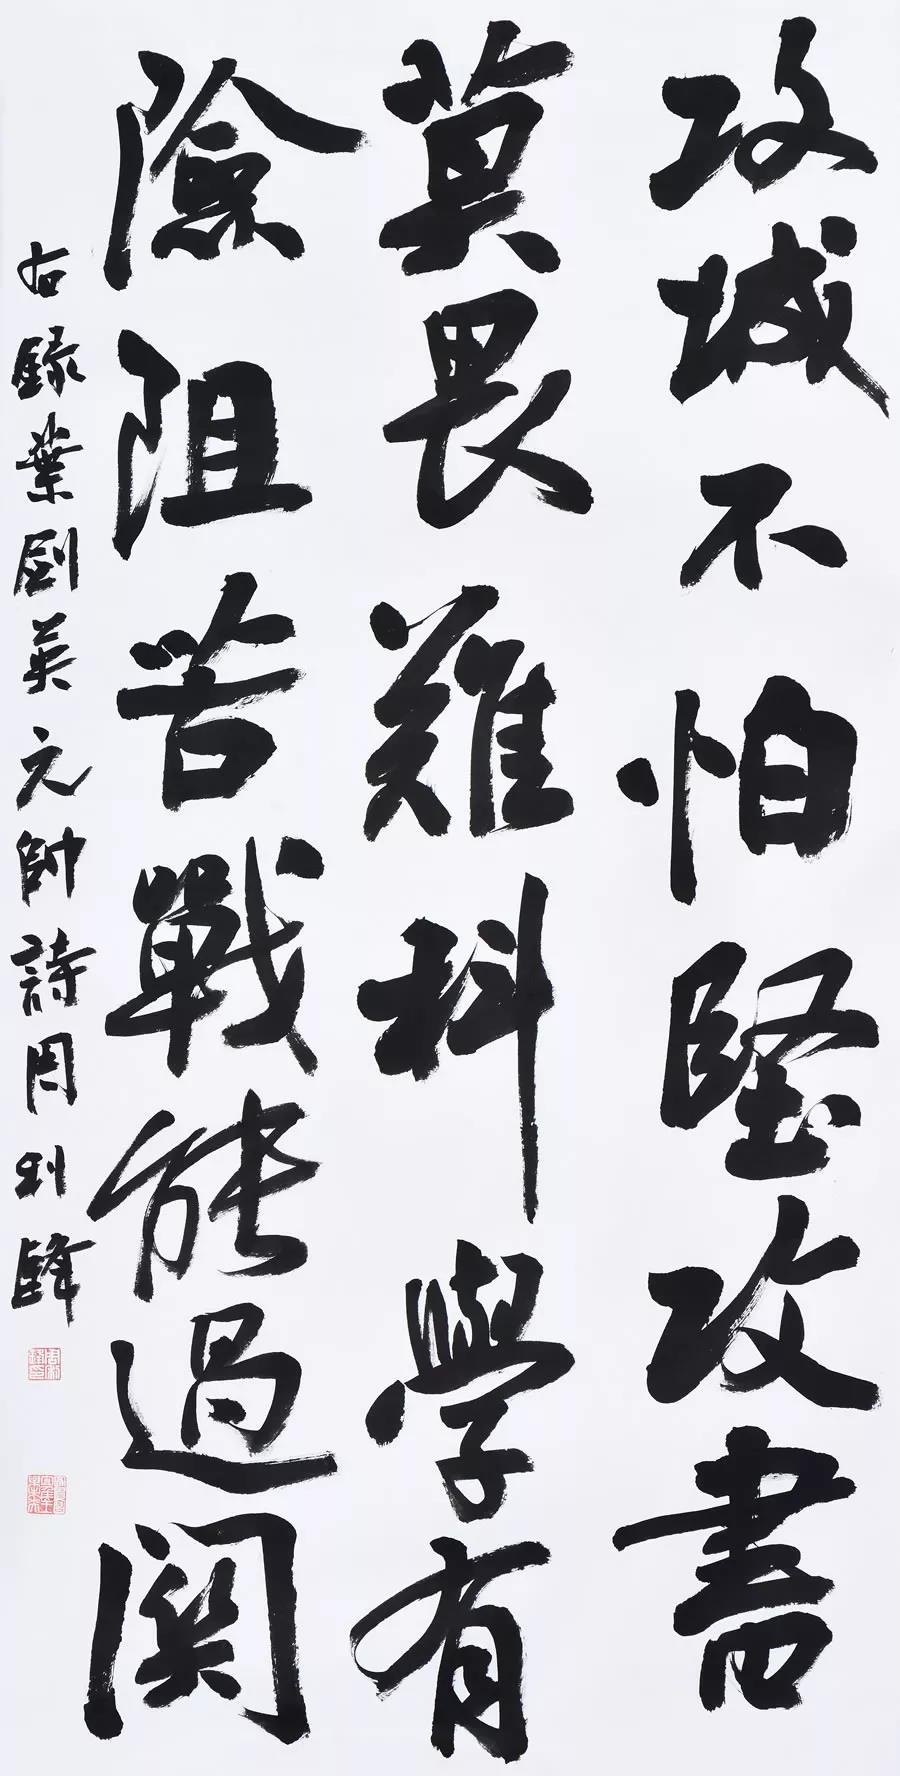 攻城不怕堅攻書
莫畏難科學有
險阻苦戰能過關
右錄葉劍英元帥詩周利鋒